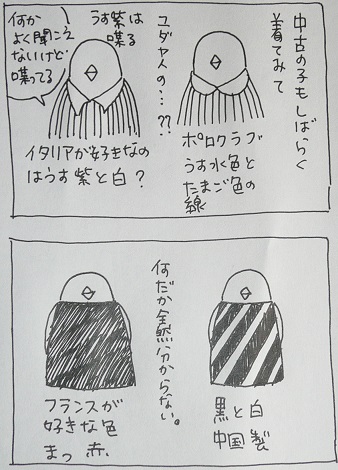 中古の子もしばらく
着てみて
ポロクラブ
うす水色と
たまご色の
線
ユダヤ人の…??
うす紫は
喋る
何か
よく聞こえ
ないけど
喋ってる
イタリアが好きなの
はうす紫と白?
黒と白
中国製
何だか全然分からない。
フランスが
好きな色
まっ赤